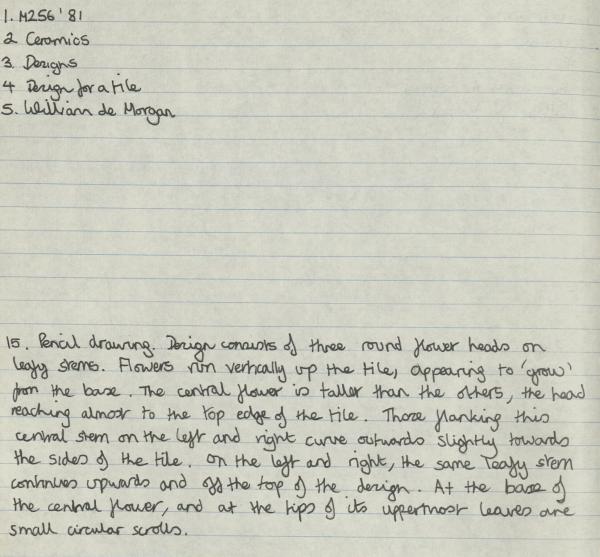 1. M256 '81
2 Ceramics
3. Designs
4 Design for a tile
5. William de Morgan
15. Pencil drawing. Design consists of three round flower heads on
leafy stems. Flowers run vertically up the tile, appearing to 'grow'
from the base. The central flower is taller than the others, the head
reaching almost to the top edge of the tile. Those flanking this
central stem on the left and right curve outwards slightly towards
the sides of the tile. On the left and right, the same leafy stem
continues upwards and off the top of the design. At the base of
the central flower, and at the tips of its uppertmost leaves are
small circular scrolls.